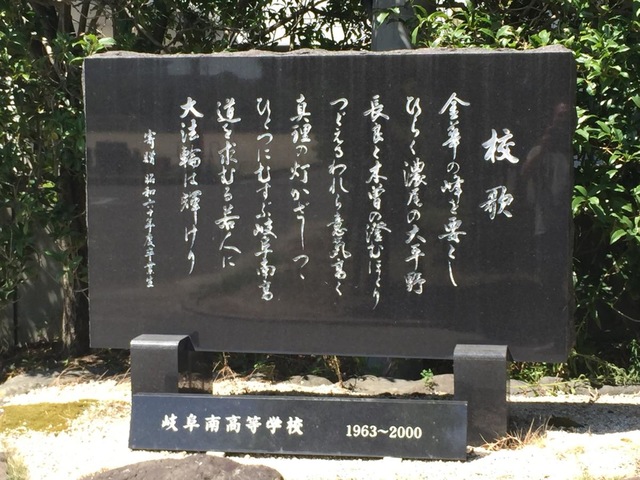 校歌
金華の峰を要とし
ひらく濃尾の大平野
長良と木曽の澄むほとり
つどえるわれら意気高く
真理の灯かざしつゝ
ひとつにむすぶ岐阜南高
道を求むる若人に
大法輪は輝けり
寄贈 昭和六十年度卒業生
岐阜南高等学校 1963~2000